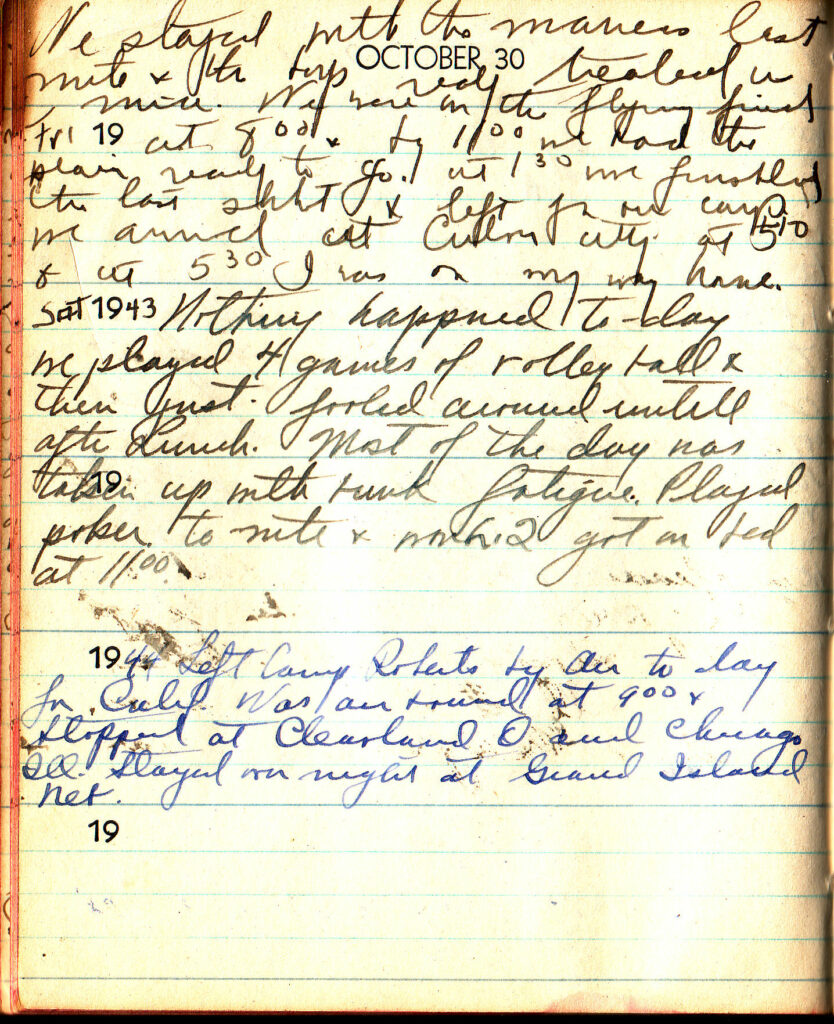 We stayed with the marines last
OCTOBER 30
nite & the boys really treated us
nice. We were on the flying field
Fri 19 at 8 00 & by 11 00 we had the
plain ready to go. at 1 30 we finished
the last shht & left for our camp
we arrived at Culver city at 5 10
& at 5 30 I was on my way home.
Sat 1943 Nothing happned to-day
we played 4 games of volley ball &
then just fooled around untill
afte Lunch. Most of the day was
19
taken up with bunk fatigue. Played
poker to nite & won 2 got in bed
at 11 00.
1944 Left Camp Roberts by Air to day
for Calif Was air bound at 9 00 &
stopped at Cleavland O and Chicago
Ill. Stayed over night at Grand Island
Neb.
19